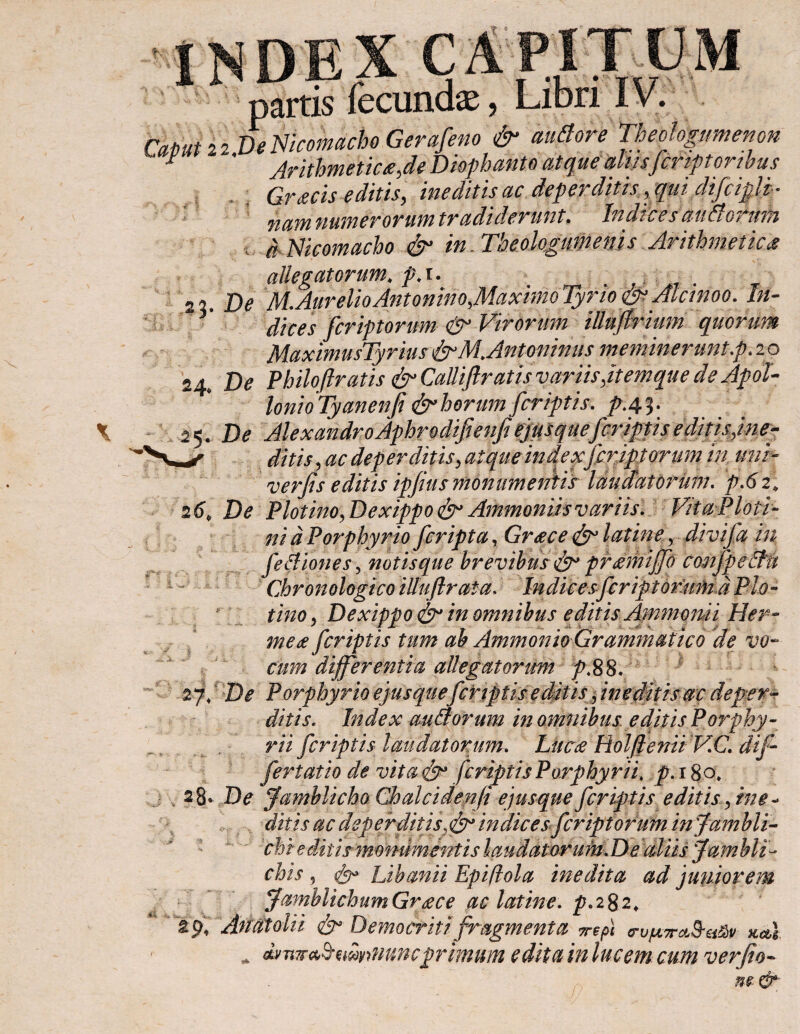 INDEX CAPITUM
partis secundæ, Libri IV.
Caput 22. De Nicomacho Geraseno & auctore Theologumenon
Arithmeticæ, de Diophanto atque aliis scriptoribus
Græcis editis, ineditis ac deperditis, qui discipli-
nam numerorum tradiderunt. Indices auctorum
à Nicomacho & in Theologumenis Arithmeticæ
allegatorum. p. 1.
23. De M. Aurelio Antonino, Maximo Tyrio & Alcinoo. In-
dices scriptorum & Virorum illustrium quorum
Maximus Tyrius & M. Antoninus meminerunt. p. 20
24. De Philostratis & Callistratis variis, itemque de Apol-
lonio Tyanensi & horum scriptis. p. 43.
25. De Alexandro Aphrodisiensi ejusque scriptis editis, ine-
ditis, ac deperditis, atque index scriptorum in uni-
versis editis ipsius monumentis laudatorum. p. 62.
26. De Plotino, Dexippo & Ammoniis variis. Vita Ploti-
ni à Porphyrio scripta, Græce & latine, divisa in
sectiones, notisque brevibus & præmisso conspectu
Chronologico illustrata. Indices scriptorum à Plo-
tino, Dexippo & in omnibus editis Ammonii Her-
meæ scriptis tum ab Ammonio Grammatico de vo-
cum differentia allegatorum p. 88.
27. De Porphyrio ejusque scriptis editis, ineditis ac deper-
ditis. Index auctorum in omnibus editis Porphy-
rii scriptis laudatorum. Lucæ Holstenii V.C. dis-
sertatio de vita & scriptis Porphyrii. p. 180.
28. De Jamblicho Chalcidensi ejusque scriptis editis, ine-
ditis ac deperditis, & indices scriptorum in Jambli-
chi editis monumentis laudatorum. De aliis Jambli-
chis, & Libanii Epistola inedita ad juniorem
Jamblichum Græce ac latine. p. 282.
29. Anatolii & Democriti fragmenta περὶ συμπαθειῶν καὶ
ἀντιπαθειῶν nunc primum edita in lucem cum versio-
ne &